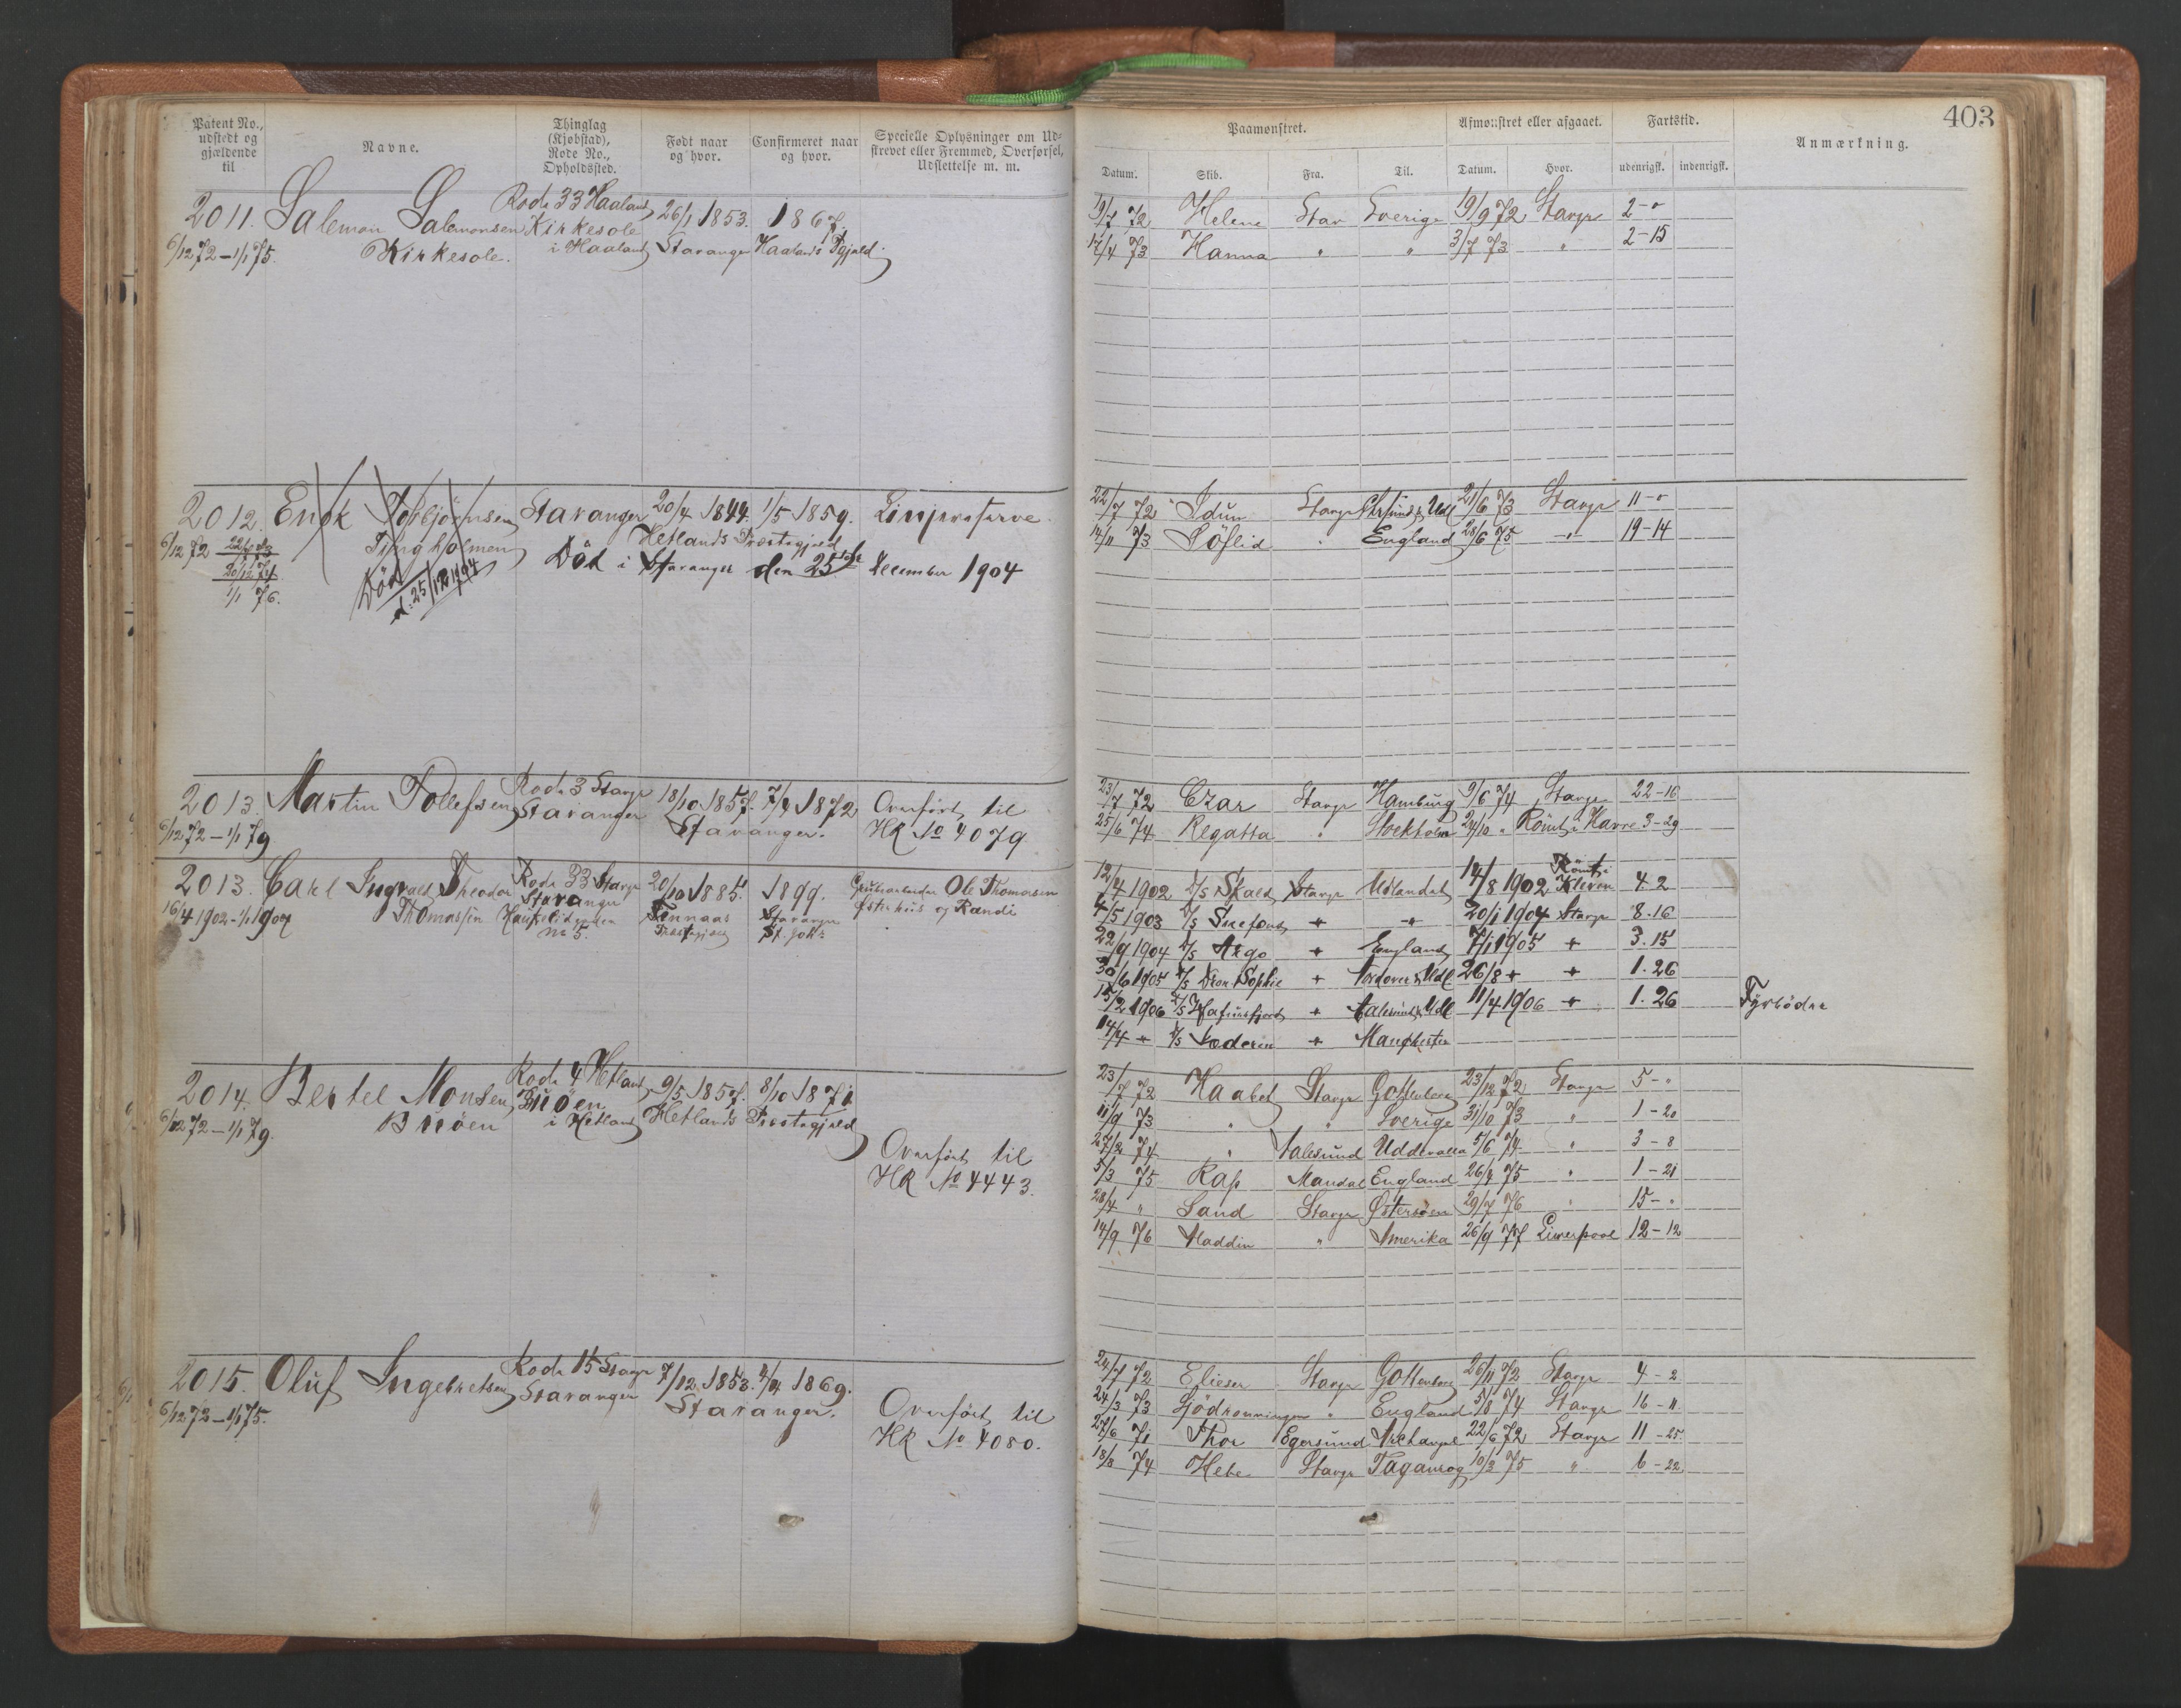 Patent No., udstedt og gjældende til
Navne.
Thinglag (Kjøbstad), Rode No., Opholdssted.
Født naar og hvor.
Confirmeret naar og hvor.
Specielle Oplysninger om Udskrevet eller Fremmed, Overførsel, Udslettelse m. m.
2011. Salemon Salemonsen Rode 33 Haaland 26/1 1853. 1867,
6/12 72 – 1/1 75. Kirkesole. Kirkesole i Haaland Stavanger Haalands Pgjæld.
2012. Enok Torbjörnsen Stavanger 20/4 1844. 1/5 1859. Linjereserve.
6/12 72 Tjinghjolmen Hetlands Præstegjeld
20/12 74
1/1 76.
Död d. 25/12 1904
Död i Stavanger den 25de December 1904
2013. Martin Tollefsen Rode 3 Stavgr 18/10 1857. 7/4 1872 Overført til
6/12 72 – 1/1 79 Stavanger Stavanger. HR No 4079
2013. Carl Ingvald Theodor Rode 33 Stavgr 20/10 1885. 1899. Ole Thomassen
16/4 1902 – 1/1 1907 Thomassen Stavanger Haukeligaden No 5. Præstegjeld Stavanger St. Joh: Østrehus og Randi
2014. Bertel Monsen, Rode 4 Hetland 9/5 1857. 8/10 1871
6/12 72 – 1/1 79. Buöen Buöen i Hetland Hetlands Præstegjeld
Overført til
HR No 4443.
2015. Oluf Ingebretsen Rode 15 Stavgr 7/12 1853. 4/4 1869.
6/12 72 – 1/1 75. Stavanger Stavanger.
Overført til
HR No. 4080.
403
Paamønstret.
Afmønstret eller afgaaet.
Fartstid.
Anmærkning.
Datum. Skib. Fra. Til. Datum. Hvor. udenrigsk. indenrigsk.
19/7 72 Helene Stav Sverige 19/9 72 Stavgr 2 – "
17/4 73 Hanna " " 3/7 73 " 2 – 15
22/7 72 Idun Stavgr Chrsund & Udl 21/6 73 Stavgr 11 – "
14/11 73 Söflid " England 28/6 75 " 19 – 14
23/7 72 Czar Stavgr Hamburg 9/6 74 Stavgr 22 – 16
25/6 74 Regatta " Stockholm 24/10 " Römt i Havre 3 – 29
12/4 1902 D/S Skald Stavgr Udlandet 14/8 1902 Römt i Kleven 4. 2
4/5 1903 D/S Snefond + + 20/1 1904 Stavgr 8. 16
22/9 1904 D/S Argo + England 7/1 1905 + 3. 15
30/6 1905 D/S Dron. Sophie + & Udl 26/8 + + 1. 26
15/2 1906 D/S Hafursfjord + Aalesund & Udl 11/4 1906 + 1. 26 Fyrbödre
14/4 + D/S Soderen + Manchester
23/7 72 Haabet Stavgr Gottenberg 23/12 72 Stavgr 5 – "
11/9 73 " " Sverige 31/10 73 " 1 – 20
27/2 74 " Aalesund Uddevalla 5/6 74 " 3 – 8
5/3 75 Rap Mandal England 26/4 75 " 1 – 21
28/4 " Sand Stavgr Østersöen 29/7 76 " 15 – "
14/9 76 Aladdin " Amerika 26/9 77 Liverpool 12 – 12
24/7 72 Elieser Stavgr Gottenborg 26/11 72 Stavgr 4 – 2
24/3 73 Sjödronningen " England 5/8 74 Stavgr 16 – 11
27/6 71 Thor Egersund Archangel 22/6 72 Stavgr 11 – 25.
18/8 74 Hebe Stavgr Taganrog 10/3 75 " 6 – 22